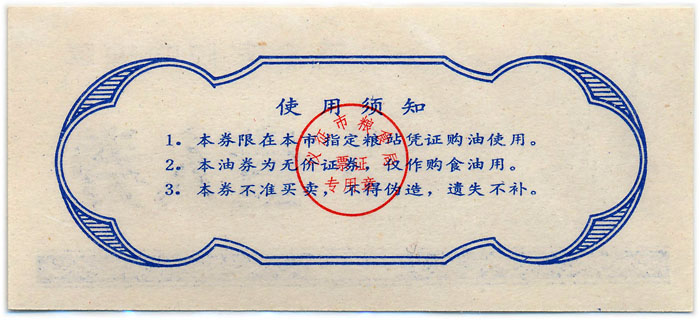 使用须知
1. 本券限在本市指定粮站凭证购油使用。
2. 本油券为无价证券，仅作购食油用。
3. 本券不准买卖，不得伪造，遗失不补。
仪征市粮食局
票证
专用章